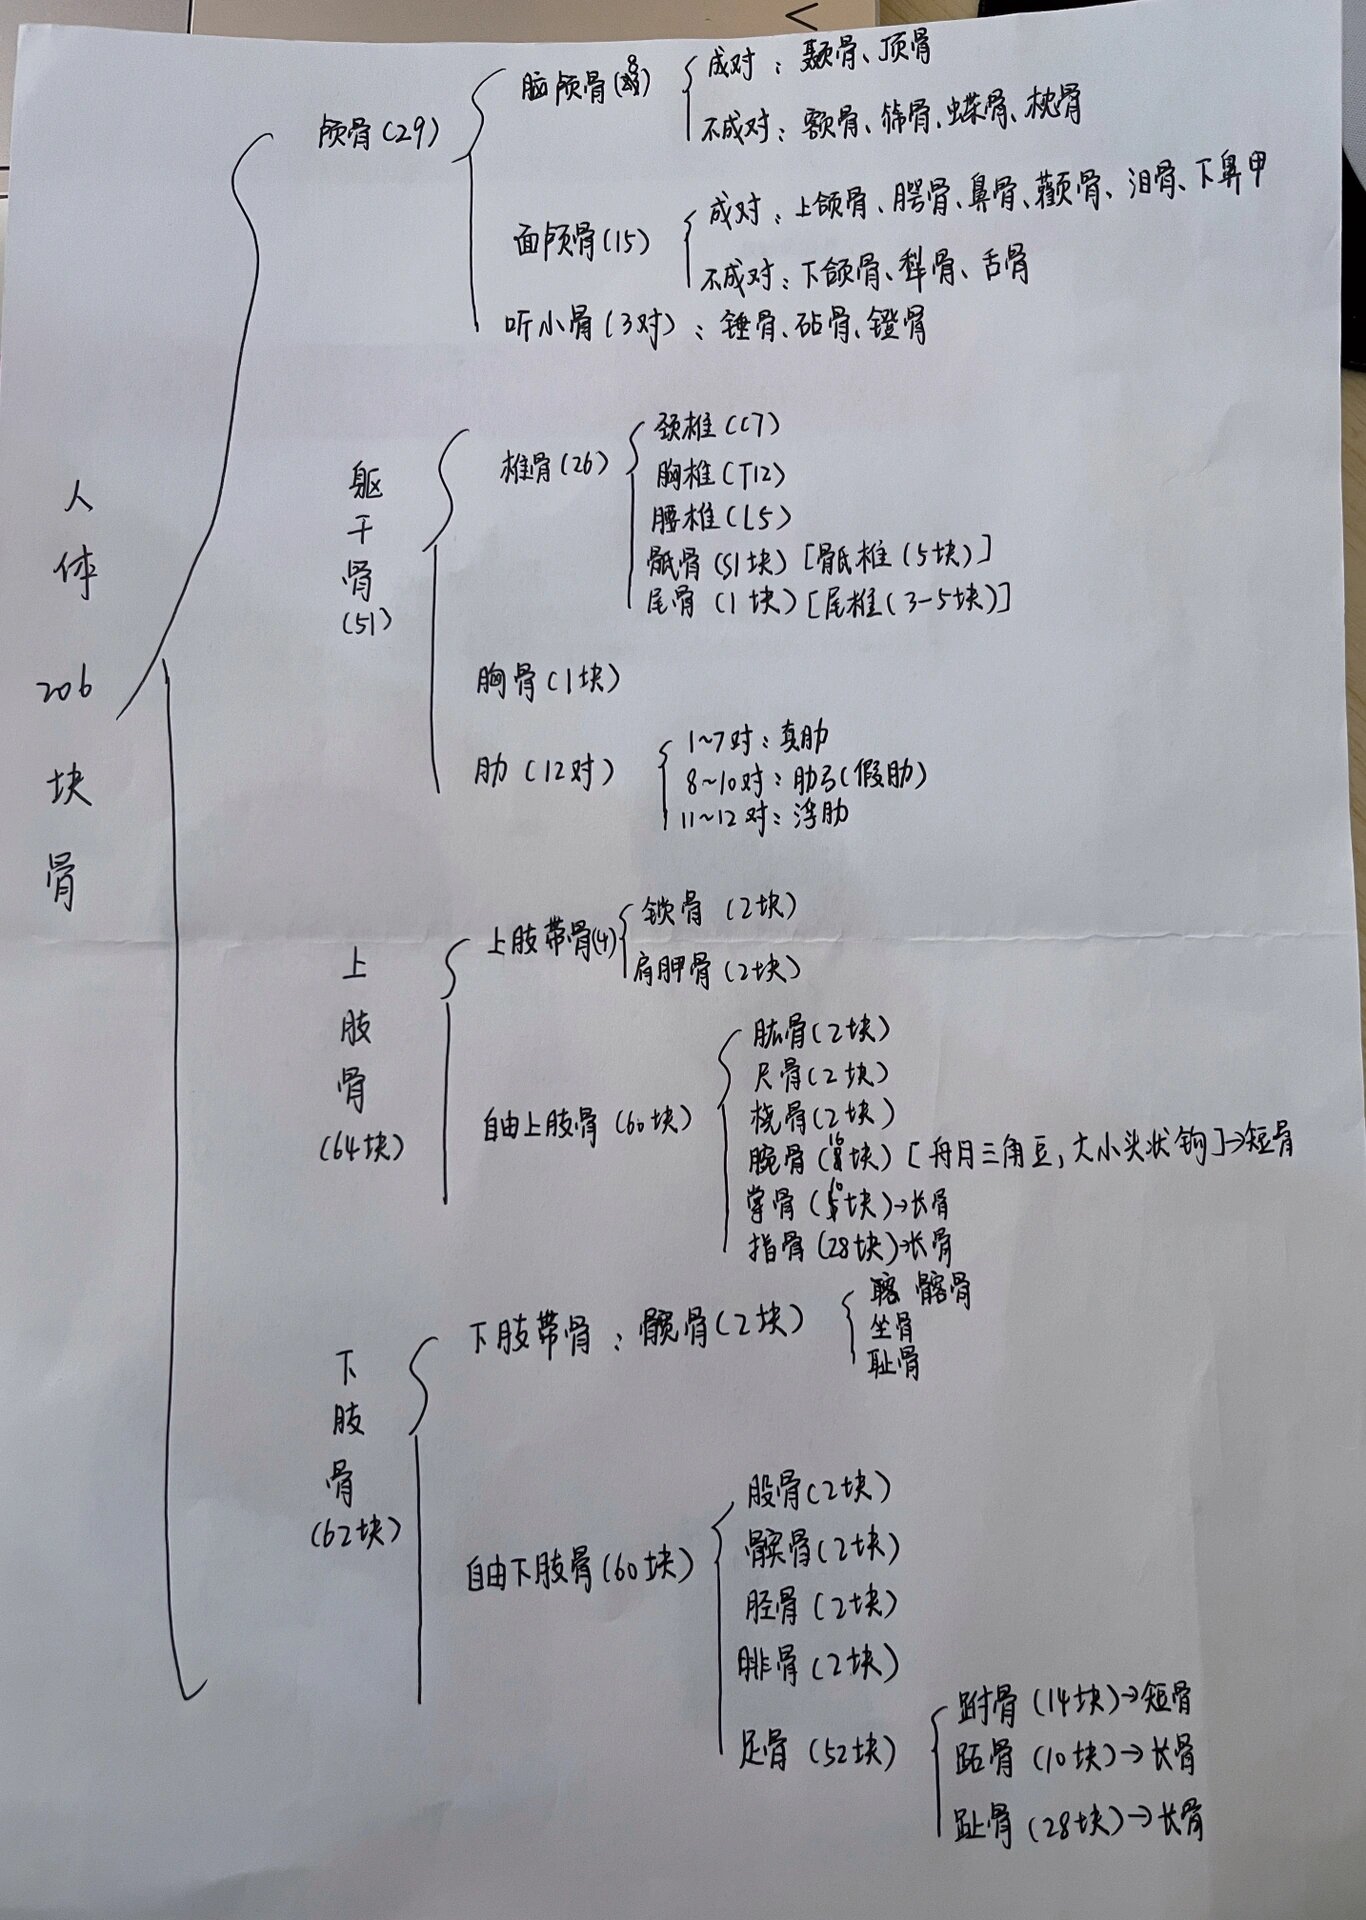 人体206块骨
颅骨(29)
脑颅骨(8)
成对：颞骨、顶骨
不成对：额骨、筛骨、蝶骨、枕骨
面颅骨(15)
成对：上颌骨、腭骨、鼻骨、颧骨、泪骨、下鼻甲
不成对：下颌骨、犁骨、舌骨
听小骨(3对)：锤骨、砧骨、镫骨
躯干骨(51)
椎骨(26)
颈椎(C7)
胸椎(T12)
腰椎(L5)
骶骨(S1块)[骶椎(5块)]
尾骨(1块)[尾椎(3-5块)]
胸骨(1块)
肋(12对)
1~7对：真肋
8~10对：肋弓(假肋)
11~12对：浮肋
上肢骨(64块)
上肢带骨(4)
锁骨(2块)
肩胛骨(2块)
自由上肢骨(60块)
肱骨(2块)
尺骨(2块)
桡骨(2块)
腕骨(16块)[舟月三角豆,大小头状钩]→短骨
掌骨(10块)→长骨
指骨(28块)→长骨
下肢骨(62块)
下肢带骨：髋骨(2块)
髂骨
坐骨
耻骨
自由下肢骨(60块)
股骨(2块)
髌骨(2块)
胫骨(2块)
腓骨(2块)
足骨(52块)
跗骨(14块)→短骨
跖骨(10块)→长骨
趾骨(28块)→长骨